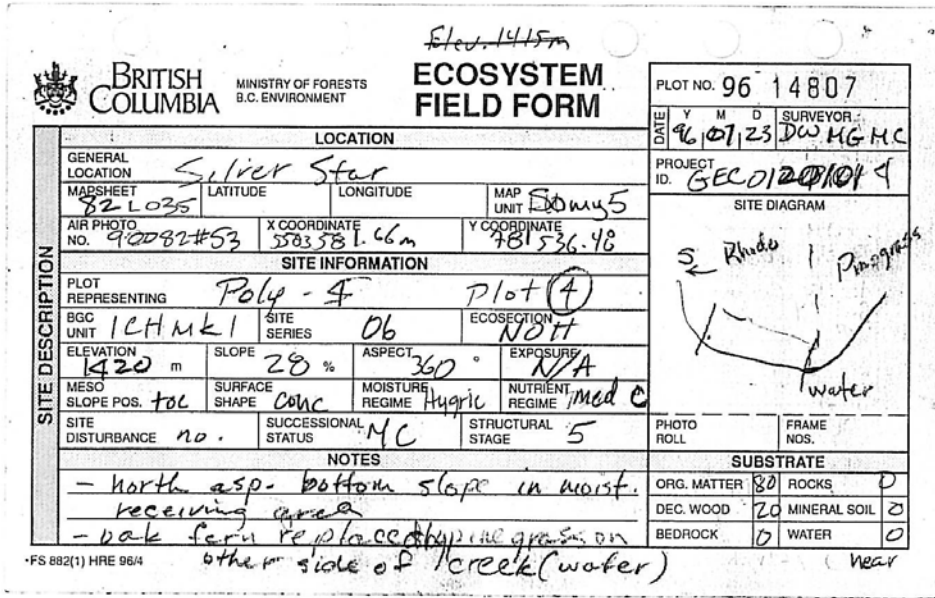 Elev. 1415m
BRITISH COLUMBIA
MINISTRY OF FORESTS
B.C. ENVIRONMENT
ECOSYSTEM FIELD FORM
PLOT NO. 96 14807
DATE Y M D 96 07 23 SURVEYOR DW MG MC
PROJECT ID. GEC01
SITE DESCRIPTION
LOCATION
GENERAL LOCATION Silver Star
MAPSHEET 82L035 LATITUDE LONGITUDE MAP UNIT
AIR PHOTO NO. 90082#53 X COORDINATE 5583581.66m Y COORDINATE 781536.48
SITE INFORMATION
PLOT REPRESENTING Poly - 4 Plot 4
BGC UNIT ICHmk1 SITE SERIES 06 ECOSECTION NOH
ELEVATION 1420 m SLOPE 28 % ASPECT 360 ° EXPOSURE N/A
MESO SLOPE POS. toe SURFACE SHAPE Conc MOISTURE REGIME Hygric NUTRIENT REGIME med C
SITE DISTURBANCE no. SUCCESSIONAL STATUS MC STRUCTURAL STAGE 5
NOTES
- north asp. bottom slope in moist.
receiving area
- oak fern replaced by pinegrass on
other side of creek (water)
SITE DIAGRAM
S Rhodo Pinegrass
water
PHOTO ROLL FRAME NOS.
SUBSTRATE
ORG. MATTER 80 ROCKS 0
DEC. WOOD 20 MINERAL SOIL 0
BEDROCK 0 WATER 0
near
•FS 882(1) HRE 96/4